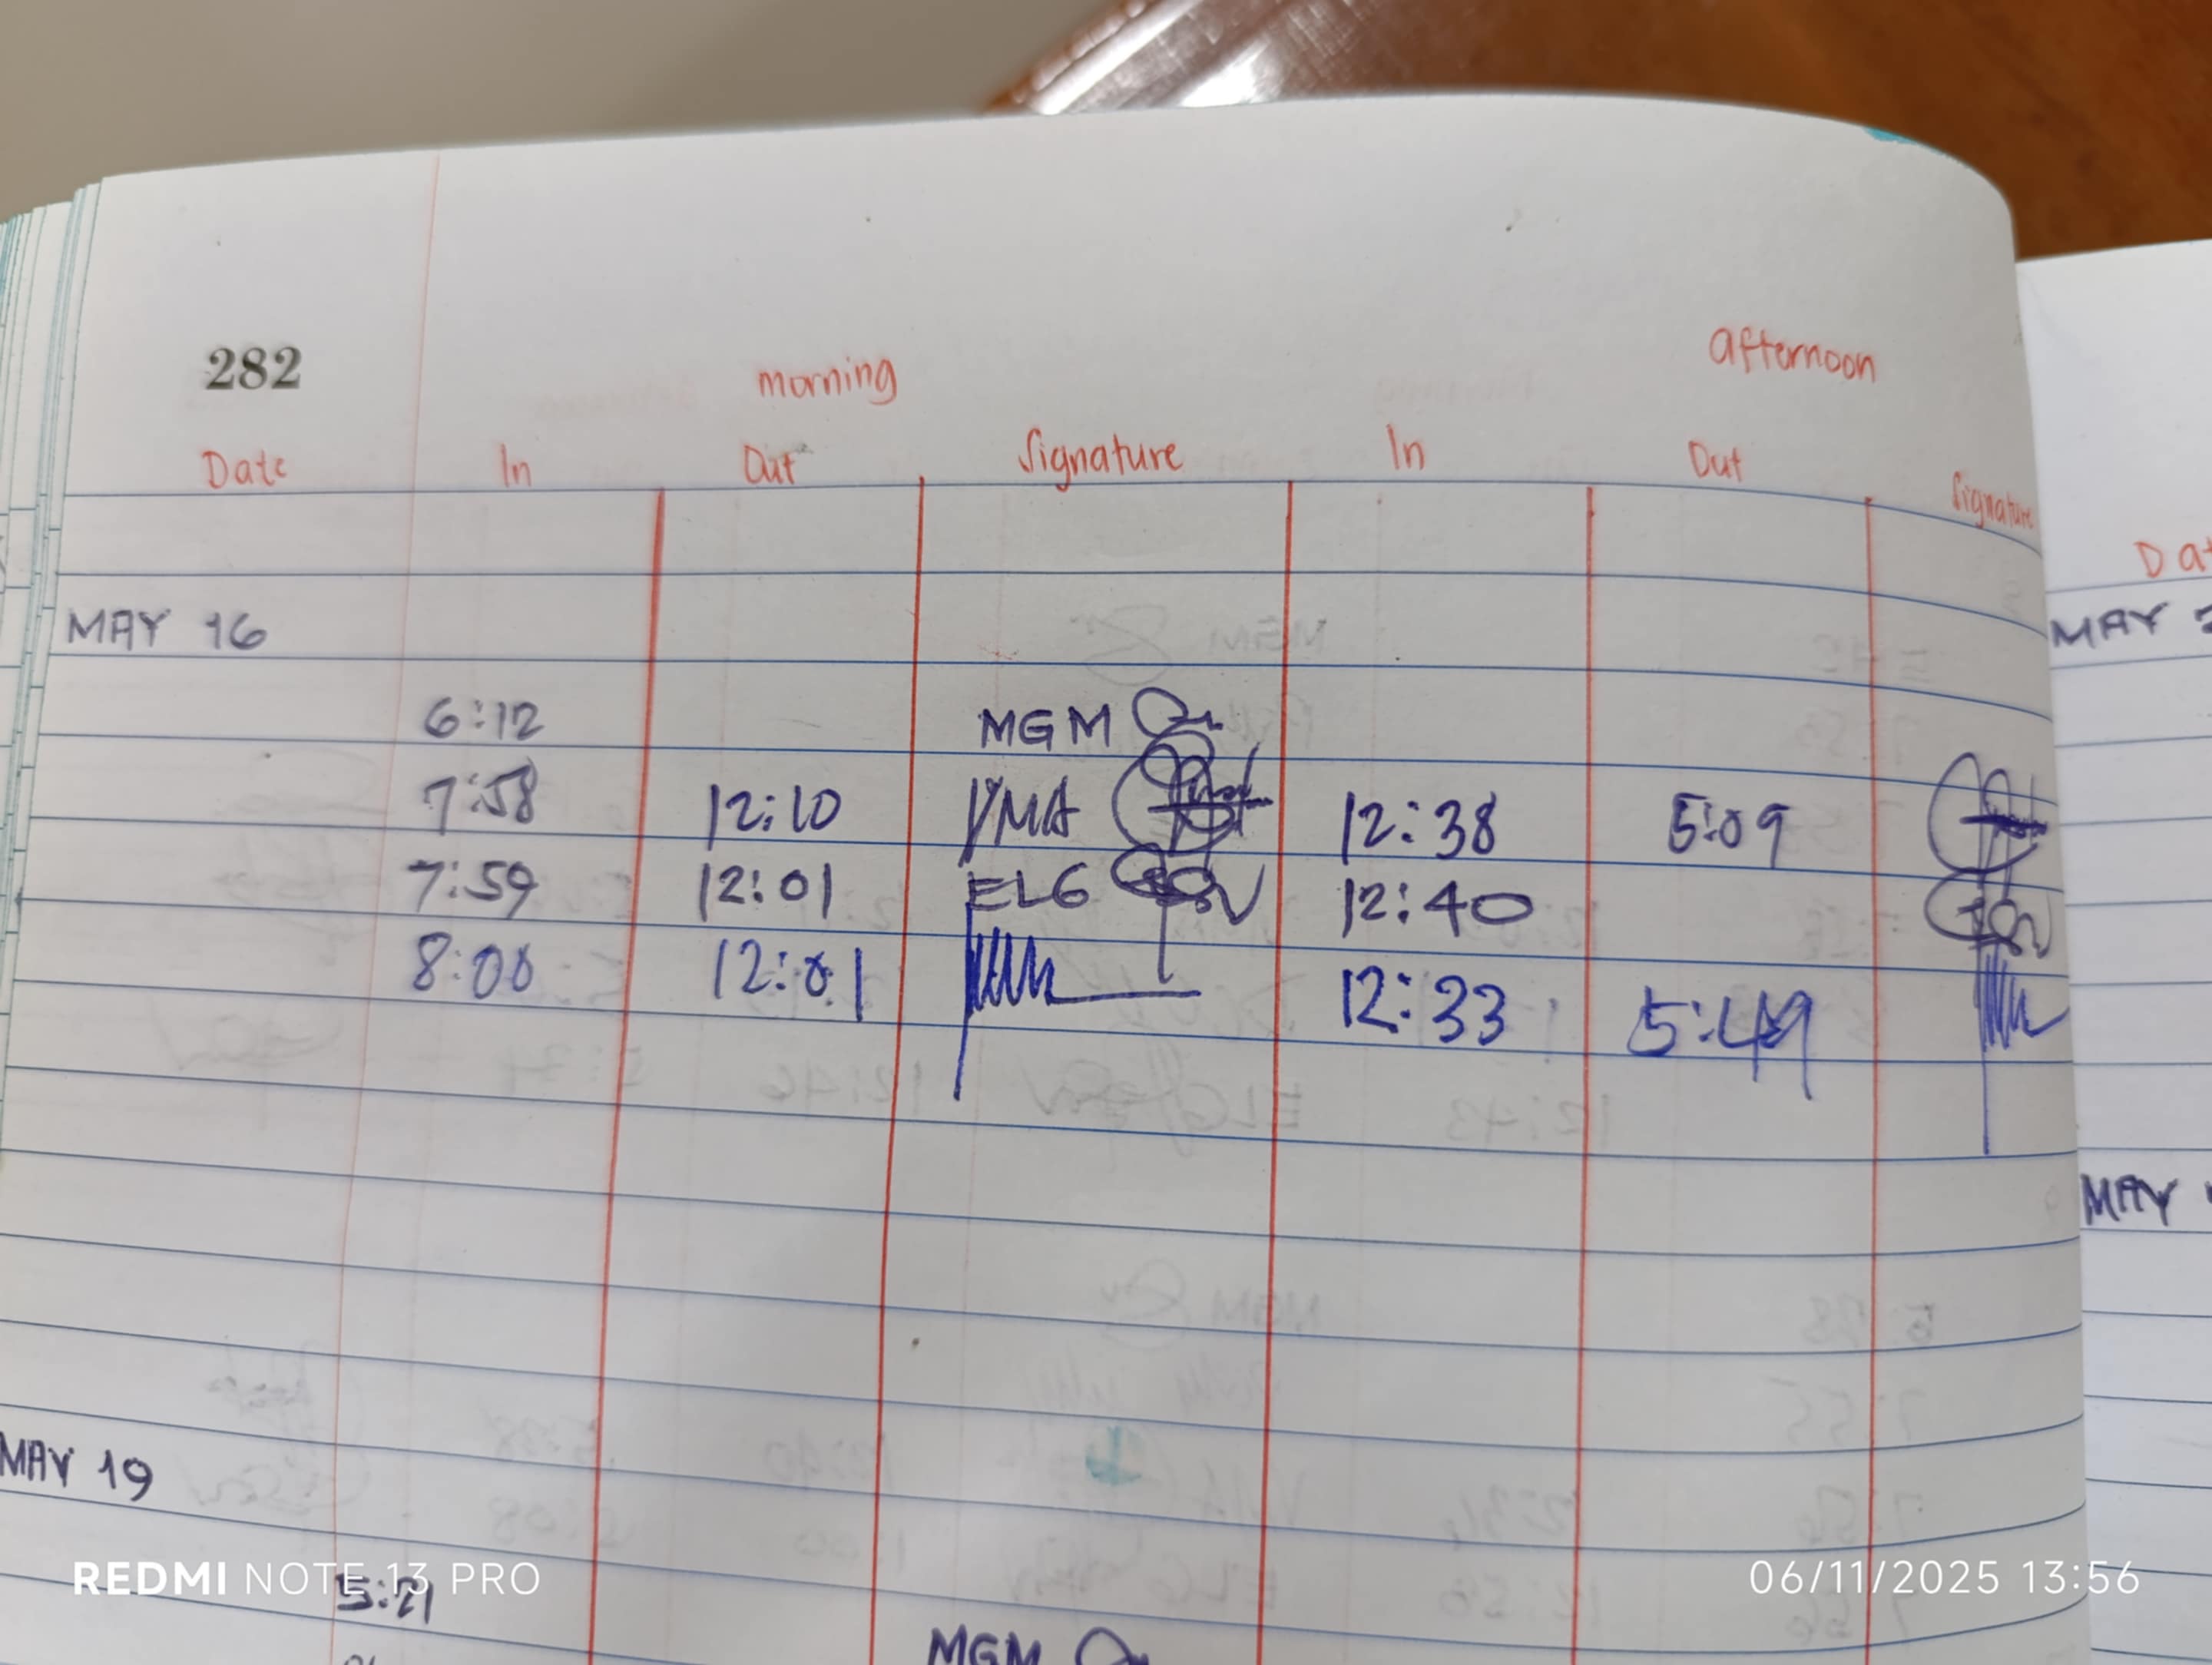 282
morning
afternoon
Date In Out Signature In Out Signature
MAY 16
6:12 MGM
7:58 12:10 YMA 12:38 5:09
7:59 12:01 ELG 12:40
8:00 12:01 12:33 5:49
MAY 19
5:21
MGM
MAY
MAY
REDMI NOTE 13 PRO
06/11/2025 13:56